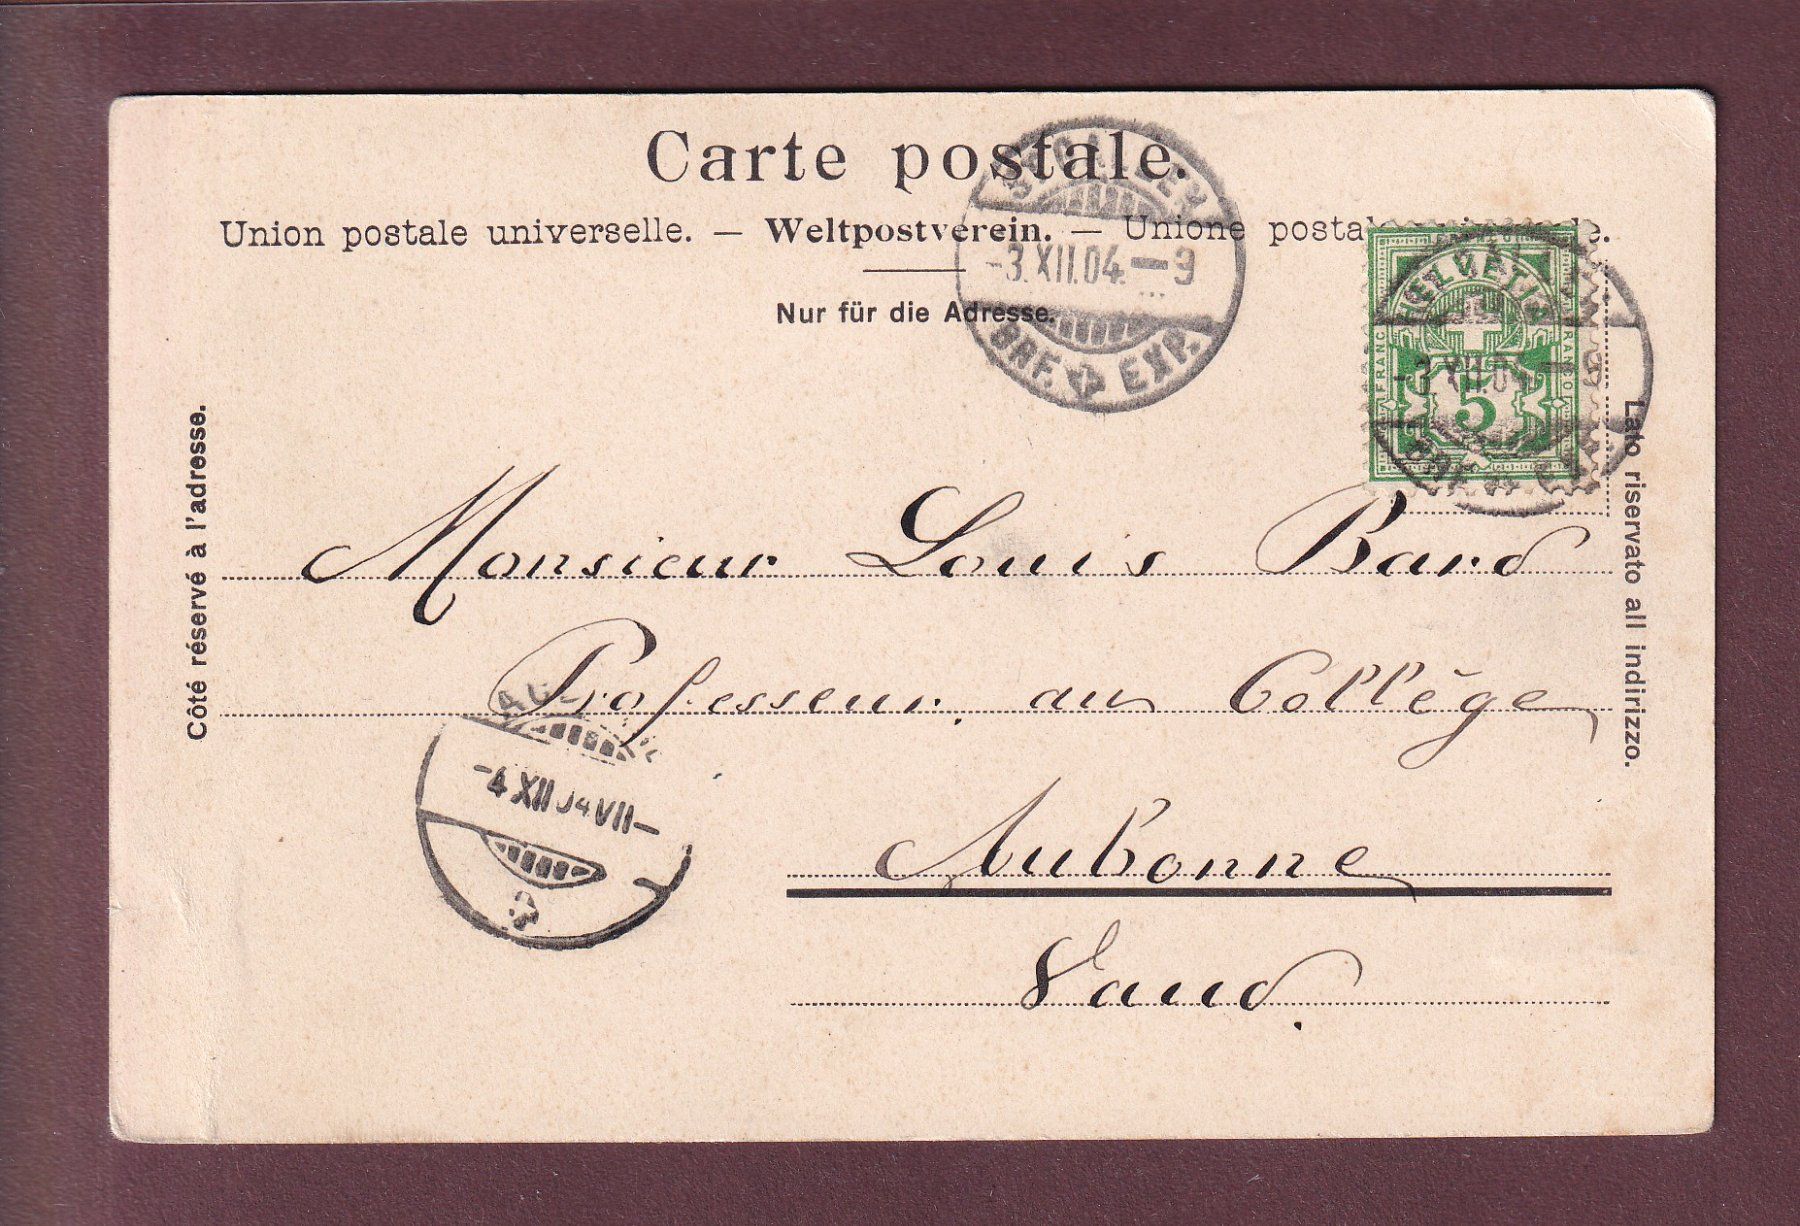 Carte postale.
Union postale universelle. — Weltpostverein. — Unione postale
Nur für die Adresse.
ST. GALLEN
-3.XII.04.—9
BRF. EXP.
HELVETIA
FRANCO FRANCO
5
-3.XII.04
BRF.
Côté réservé à l'adresse.
Lato riservato all indirizzo.
Monsieur Louis Bard
Professeur. au Collège
-4 XII 04 VII-
Aubonne
Vaud.